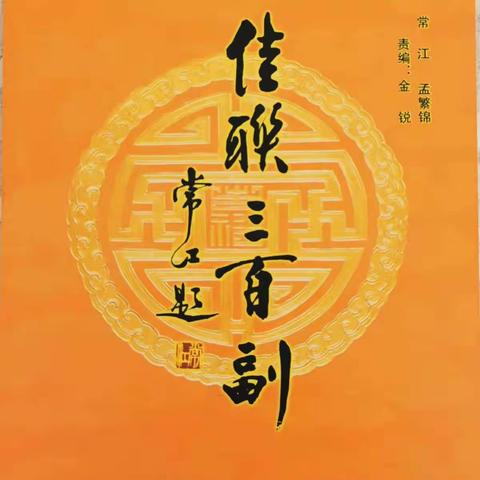 常 江 孟繁锦
责编：金 锐
佳聯三百副
常江题